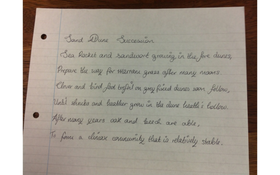 Sand Dune Succession
Sea Rocket and sandwort growing in the fore dunes,
Prepare the way for marram grass after many moons.
Clover and bird foot trefoil on grey fixed dunes soon follow,
Until shrubs and heather grow in the dune heath's hollow.
After many years oak and beech are able,
To form a climax community that is relatively stable.